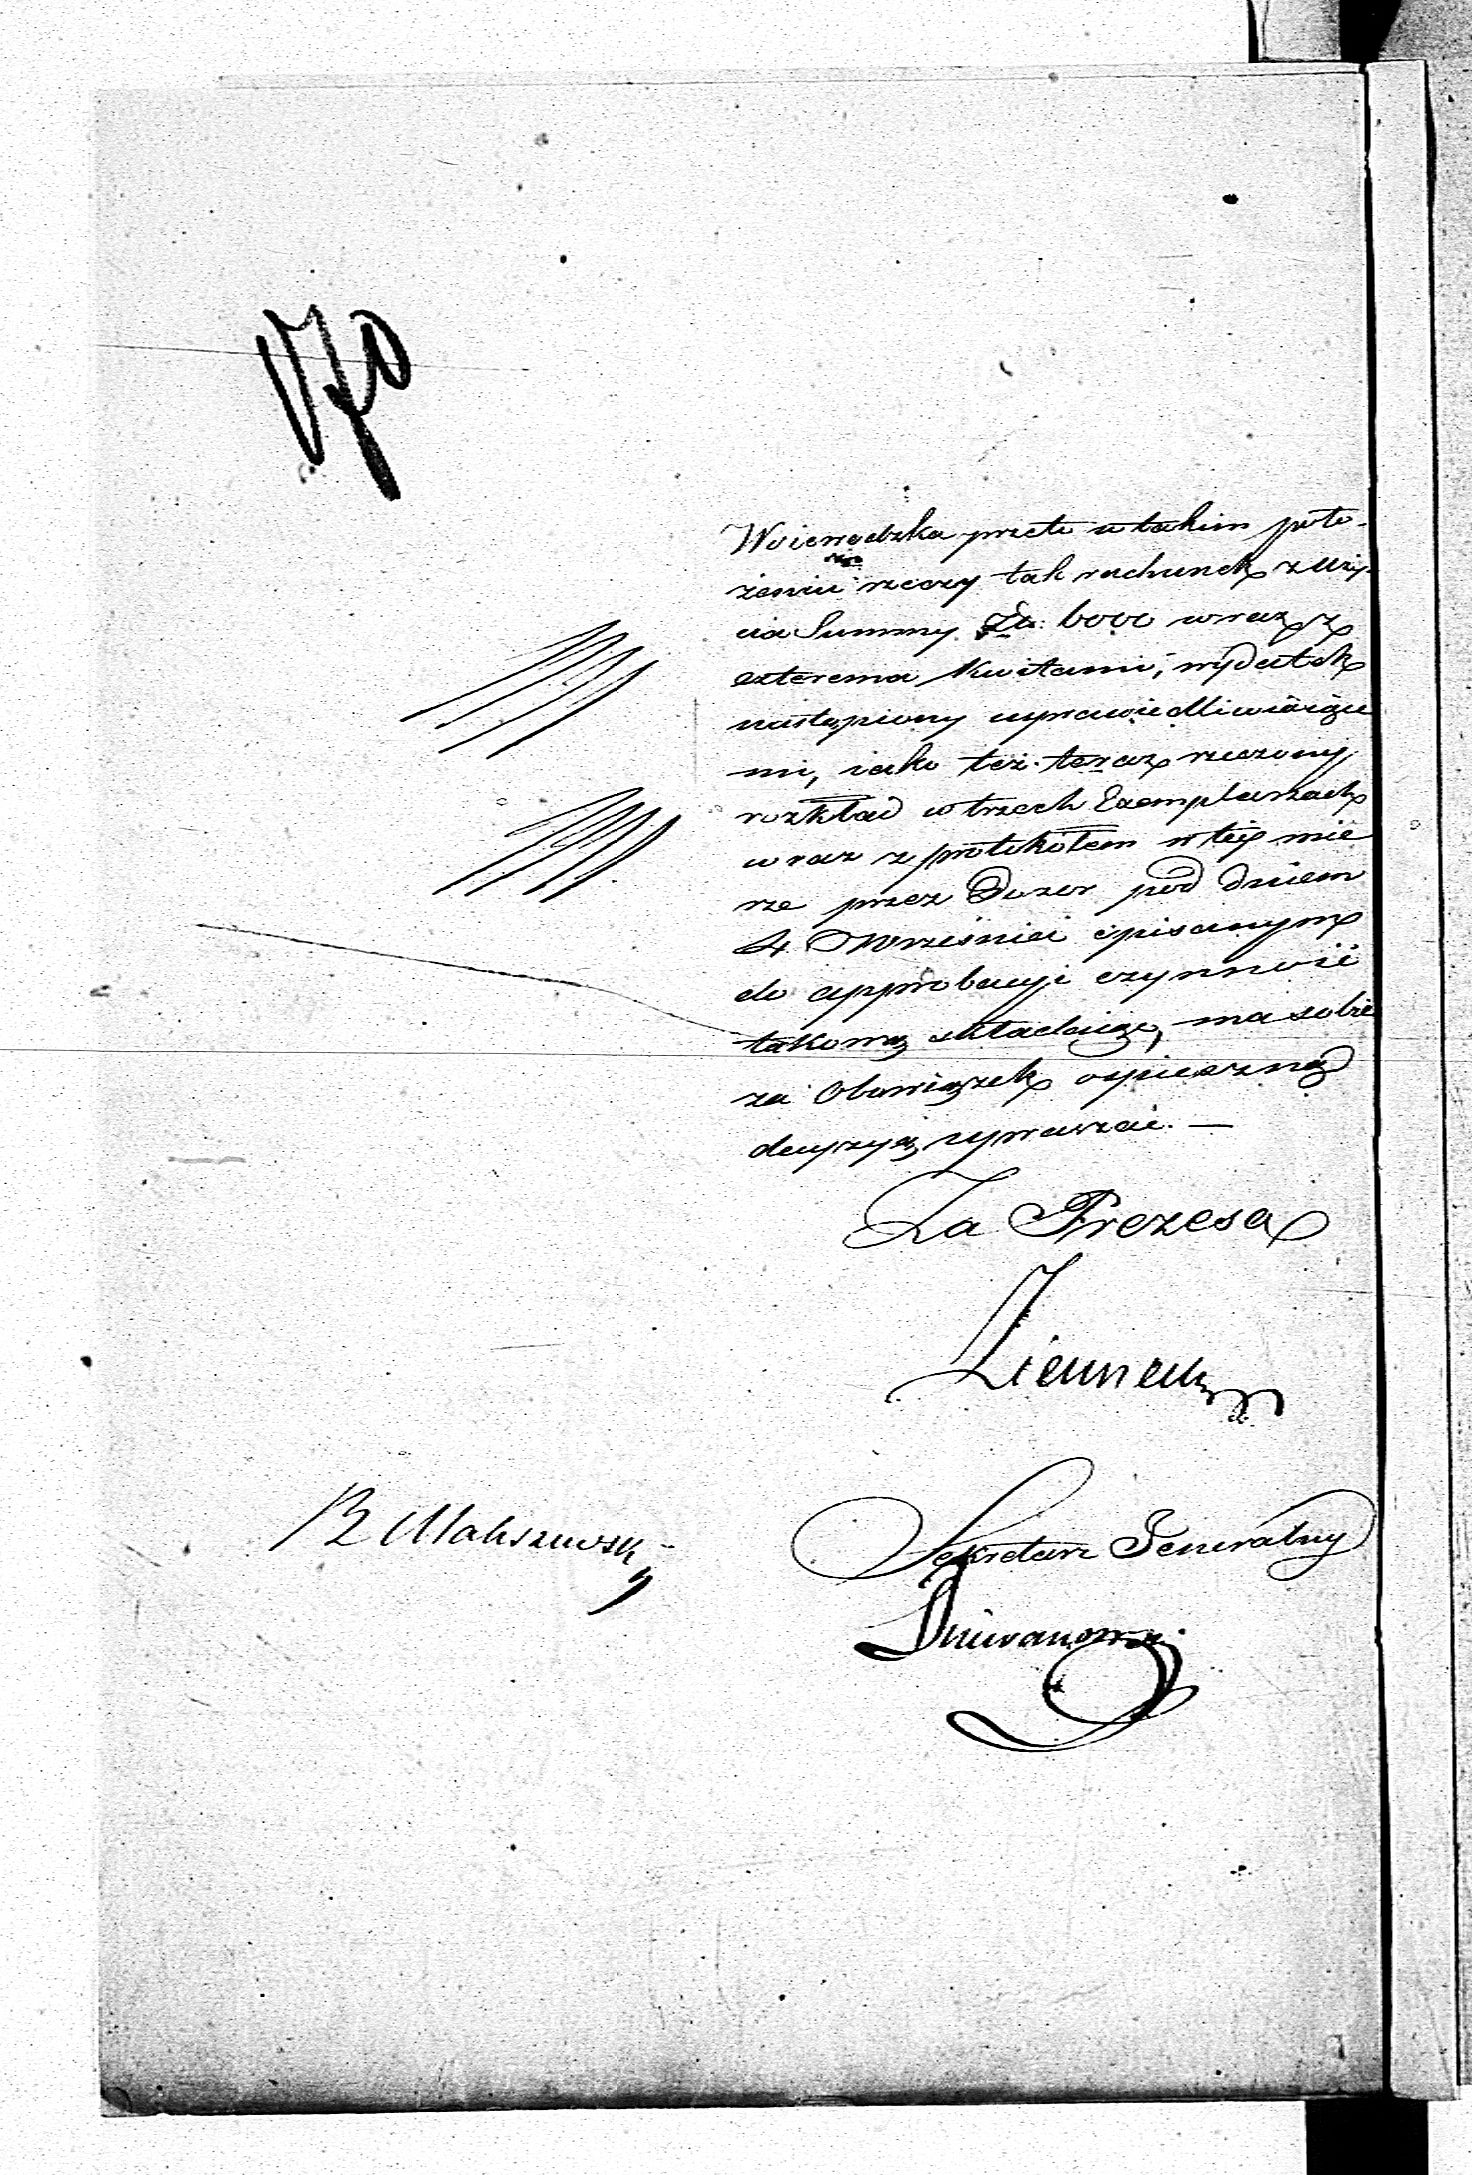 170
Woiewodzka przeto w takim poło-
żeniu rzeczy tak rachunek z uży-
cia Summy Zł: 6000 wraz z
czterema kwitami, wydatek
nastąpiony usprawiedliwiaiące
mi, iako też teraz rzeczony
rozkład w trzech Exemplarzach
wraz z protokółem w tey mie
rze przez Dozor pod dniem
4 Września spisanym
do approbacyi czynność
takową składaiąc, ma sobie
za Obowiązek o spieszną
decyzyą upraszać. —
Za Prezesa
Sekretarz Generalny